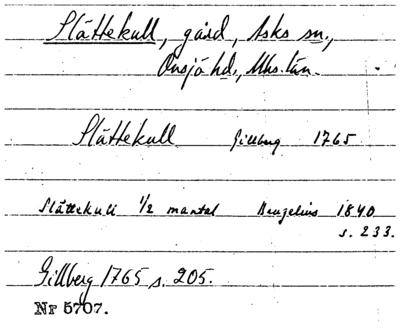 Slättekull, gård, Asks sn.,
Onsjö hd., Mhs. län.
Slättekull Gillberg 1765
Slättekull 1/2 mantal Bruzelius 1840
s. 233.
Gillberg 1765 s. 205.
Nr 5707.